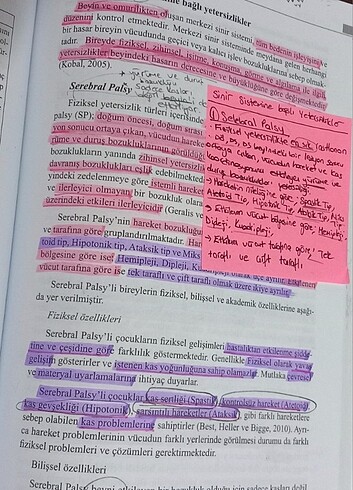 ne bağlı yetersizlikler
Beyin ve omurilikten oluşan merkezi sinir sistemi, tüm bedenin işleyişini ve
düzenini kontrol etmektedir. Merkezi sinir sisteminde meydana gelen herhangi
bir hasar bireyin vücudunda geçici veya kalıcı işlev bozukluklarına sebep olmak-
tadır. Bireyde fiziksel, zihinsel, işitme, konuşma, görme ve algılama ile ilgili
yetersizlikler beyindeki hasarın derecesine ve büyüklüğüne göre değişmektedir
(Kobal, 2005).
yürüme ve duruş
bozuklukları
Serebral Palsy
Sadece kasları
etkiliyor
Fiziksel yetersizlik türleri içerisinde
palsy (SP); doğum öncesi, doğum sırası
yon sonucu ortaya çıkan, vücudun hareke
rüme ve duruş bozukluklarının görüldüğü
bozuklukların yanında zihinsel yetersizlik
davranış bozuklukları eşlik edebilmektedir
yindeki zedelenmeye göre istemli hareket
ve ilerleyici olmayan bir bozukluk olara
üzerindeki etkileri ilerleyicidir (Geralis ve
Serebral Palsy'nin hareket bozukluğu
ve tarafına göre gruplandırılmaktadır. Har
toid tip, Hipotonik tip, Ataksik tip ve Miks
bölgesine göre ise Hemipleji, Dipleji, Ku
vücut tarafına göre ise tek taraflı ve çift taraflı olmak üzere ikiye ayrılır
Serebral Palsy'li bireylerin fiziksel, bilişsel ve akademik özelliklerine aşağı-
da yer verilmiştir.
Fiziksel özellikleri
Serebral Palsy'li çocukların fiziksel gelişimleri hastalıktan etkilenme şidde-
tine ve çeşidine göre farklılık göstermektedir. Genellikle Fiziksel olarak yavaş
gelişim gösterirler ve istenen kas yoğunluğuna sahip olamazlar. Mutlaka çevresel
ve materyal uyarlamalarına ihtiyaç duyarlar.
Serebral Palsy'li çocuklar kas sertliği (Spastik), kontrolsüz hareket (Atetoid),
kas gevşekliği (Hipotonik), sarsıntılı hareketler (Ataksik), gibi farklı hareketlere
sebep olabilen kas problemlerine sahiptirler (Best, Heller ve Bigge, 2010). Ayrı-
ca hareket problemlerinin vücudun farklı yerlerinde görülmesi durumu da farklı
fiziksel problemleri ve çözümleri gerektirmektedir.
Bilişsel özellikleri
Sinir Sistemine bağlı Yetersizlikler
① Serebral Palsy
Fiziksel yetersizlikte en sık rastlanan
ortaya çıkan, vücudun hareket ve kas
koordinasyonunu etkileyen yürüme ve
duruş bozuklukları yetersizliği
göre, Spastik Tip,
Atetoid Tip, Hipotonik Tip, Ataksik Tip, Miks
Etkilenen vücut bölgesine göre; Hemipleji,
Dipleji, Kuadripleji,
Etkilenen vücut tarafına göre, Tek
taraflı ve çift taraflı